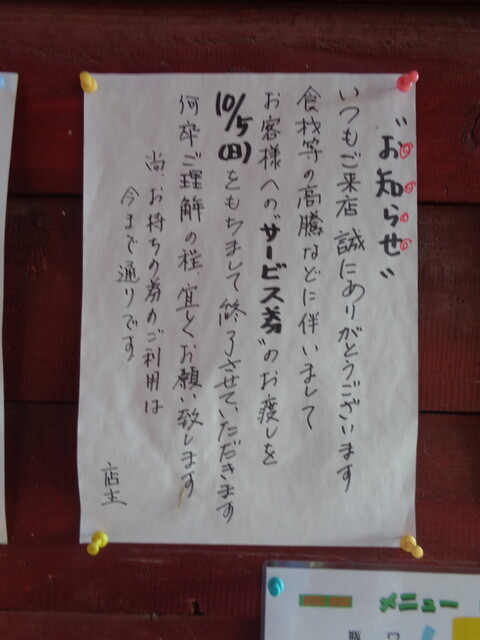 ”お知らせ”
いつもご来店誠にありがとうございます
食材等の高騰などに伴いまして
お客様への”サービス券”のお渡しを
10/5(日)をもちまして終了させていただきます
何卒ご理解の程、宜しくお願い致します
尚、お持ちの券のご利用は
今まで通りです
店主
メニュー